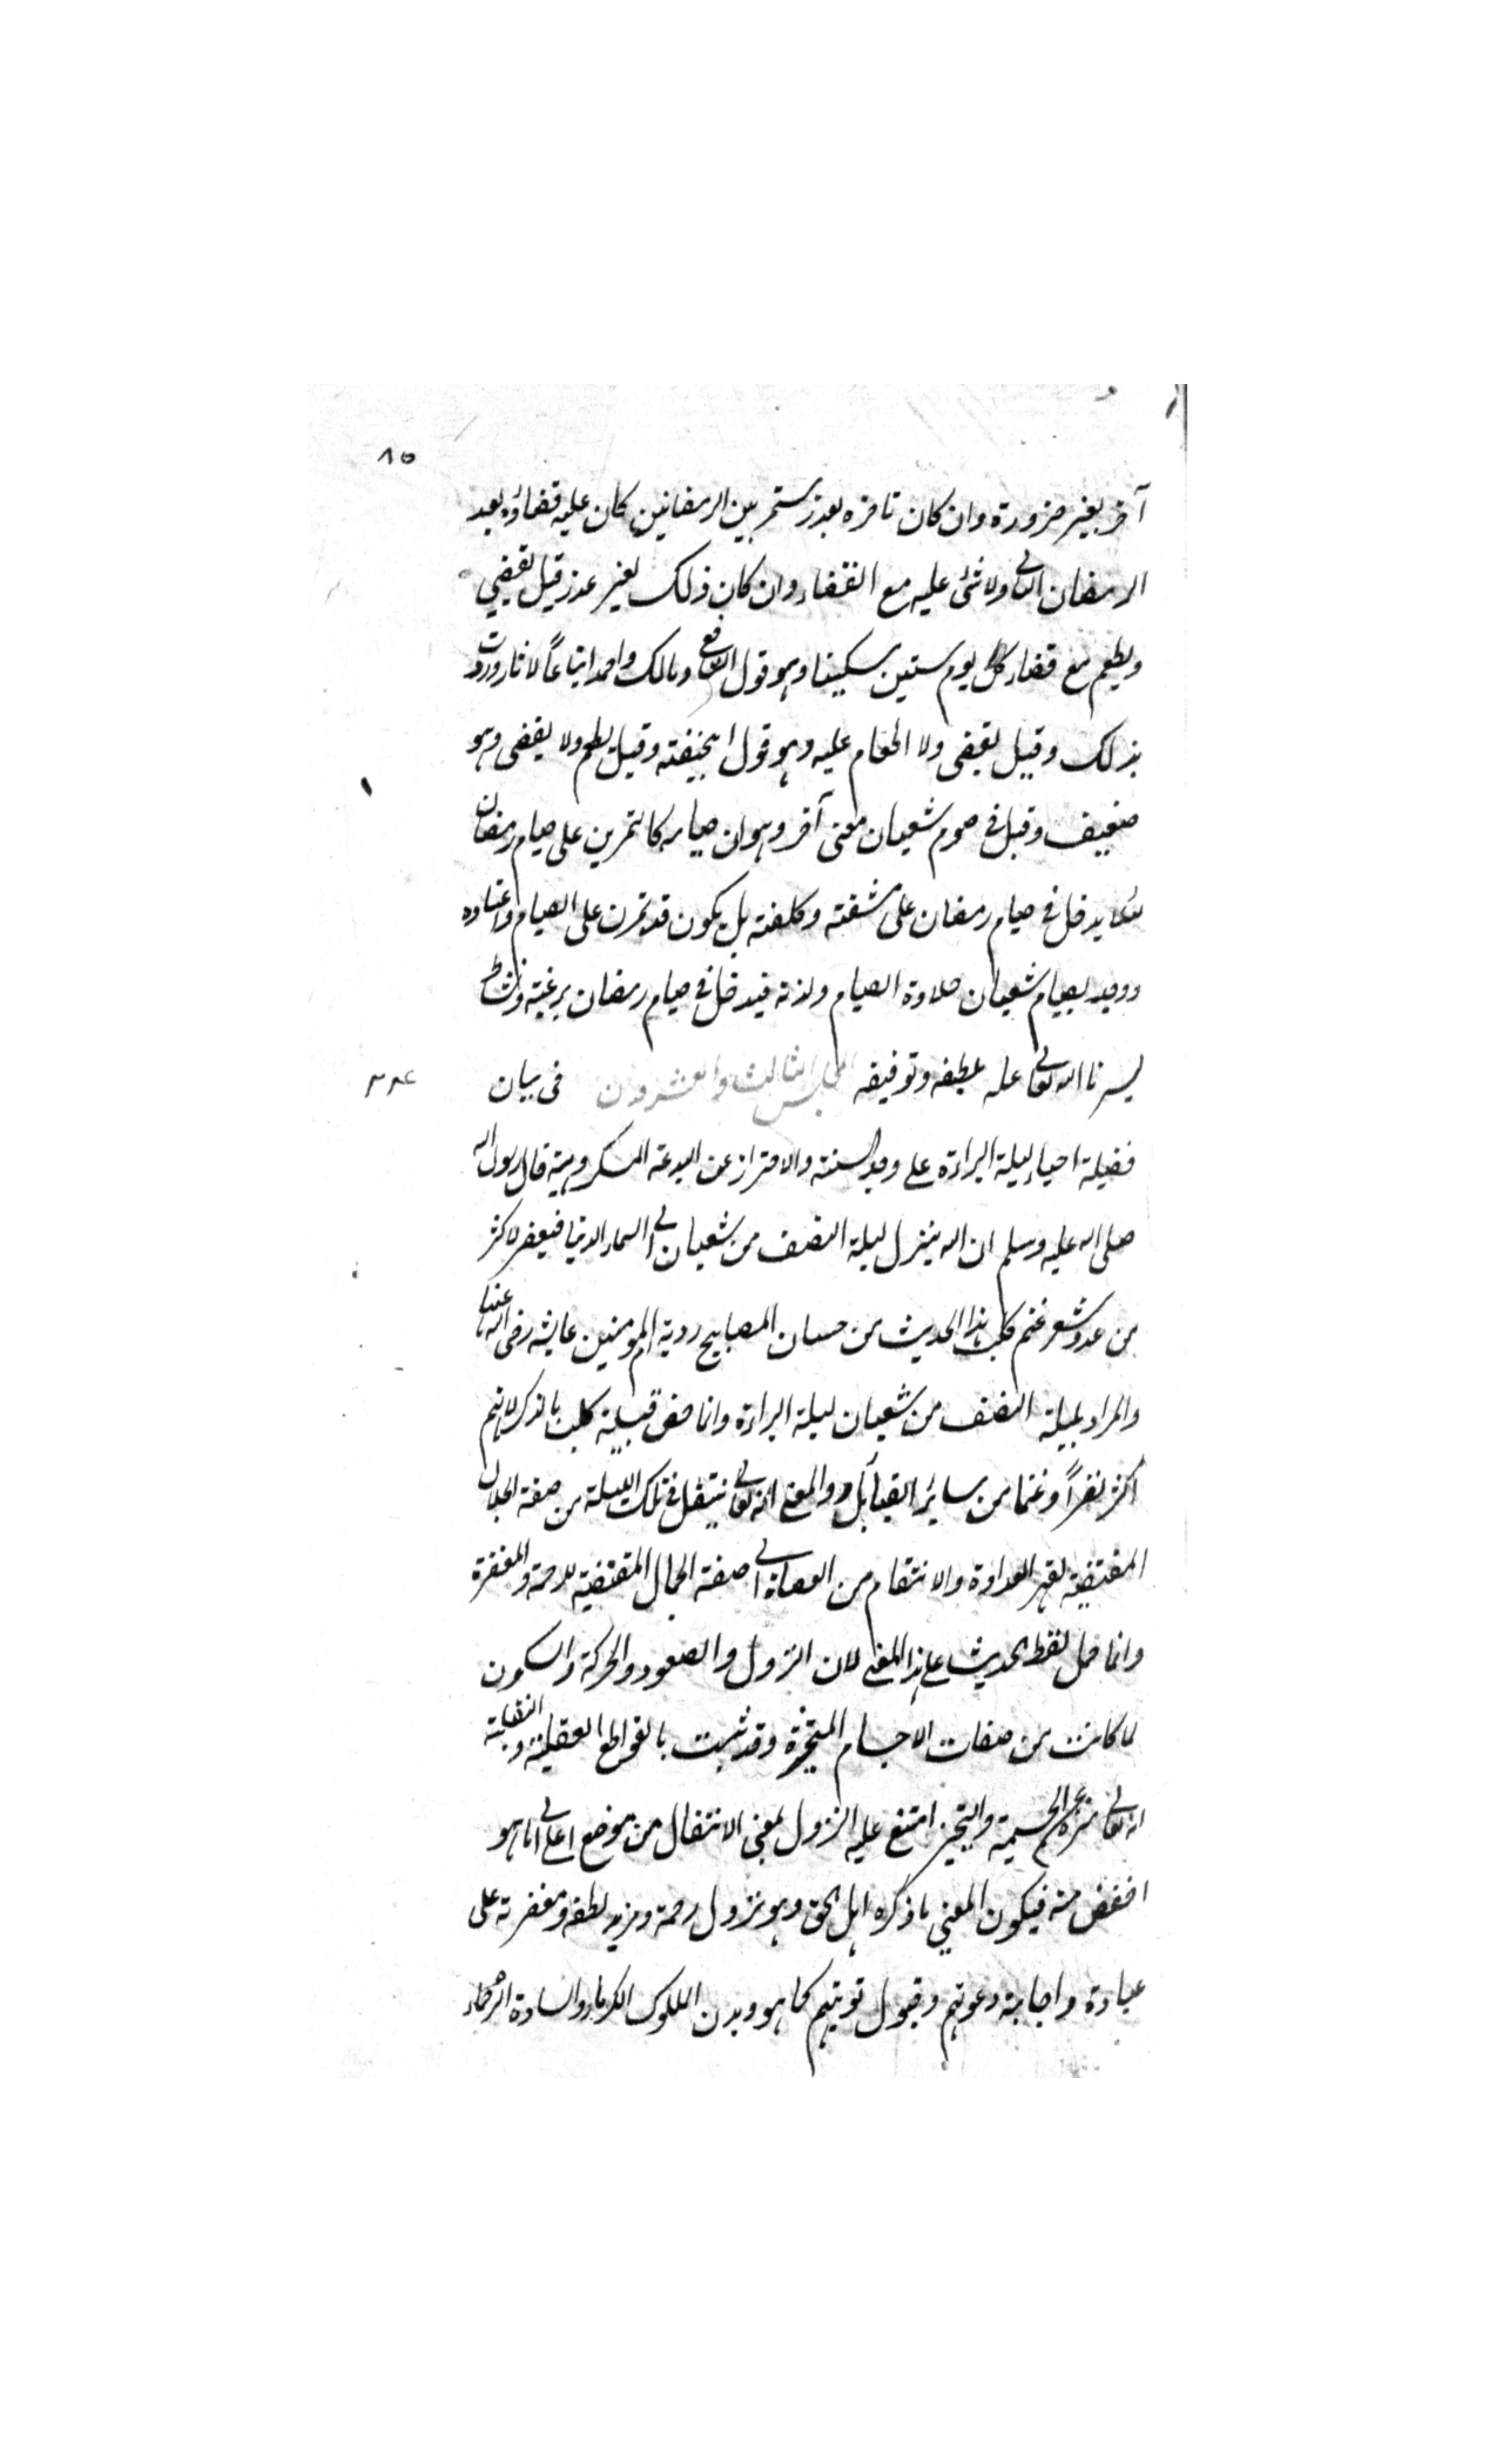 ٨٥
آخر بغير ضرورة وان كان تاخره بعذر مستمر بين الرمضانين كان عليه قضاؤه بعد
الرمضان الثاني ولا شئ عليه مع القضاء وان كان ذلك لغير عذر قيل يقضي
ويطعم مع قضاء كل يوم ستين مسكينا وهو قول الشافعي ومالك واحمد اتباعاً لاثار وردت
بذلك وقيل يقضى ولا اطعام عليه وهو قول ابيحنيفة وقيل يطعم ولا يقضى وهو
ضعيف وقيل في صوم شعبان معنى آخر وهو ان صيامه كالتمرين على صيام رمضان
لئلا يدخل في صيام رمضان على مشقة وكلفة بل يكون قد تمرن على الصيام واعتاده
ووجد بصيام شعبان حلاوة الصيام ولذته فيدخل في صيام رمضان برغبة ونشاط
يسرنا الله تعالى عليه بلطفه وتوفيقه المجلس الثالث والعشرون في بيان
٢٣ع
فضيلة احياء ليلة البراءة على وجه السنة والاحتراز عن البدعة المكروهية قال رسول الله
صلى الله عليه وسلم ان الله ينزل ليلة النصف من شعبان الى السماء الدنيا فيغفر لاكثر
من عدد شعر غنم كلب هذا الحديث من حسان المصابيح روته ام المؤمنين عايشه رضى الله عنها
والمراد بليلة النصف من شعبان ليلة البراءة وانما خص قبيلة كلب بالذكر لانهم
اكثر نفراً وغنما من سائر القبآئل والمعنى انه تعالى ينتقل في تلك الليلة من صفة الجلال
المقتضية لقهر العداوة والانتقام من العصاة الى صفة الجمال المقتضية للرحمة والمغفرة
وانما حمل لفظ الحديث على هذا المعنى لان النزول والصعود والحركة والسكون
لما كانت من صفات الاجسام المتحيزة وقد ثبت بالقواطع العقلية والنقلية
انه تعالى منزه عن الجسمية والتحيز امتنع عليه النزول بمعنى الانتقال من موضع اعلى الى ما هو
اخفض منه فيكون المعني ما ذكره اهل الحق وهو نزول رحمة ومزيد لطفه ومغفرته على
عباده واجابة دعوتهم وقبول توبتهم كما هو ديدن الملوك الكرماء والسادة الرحماء